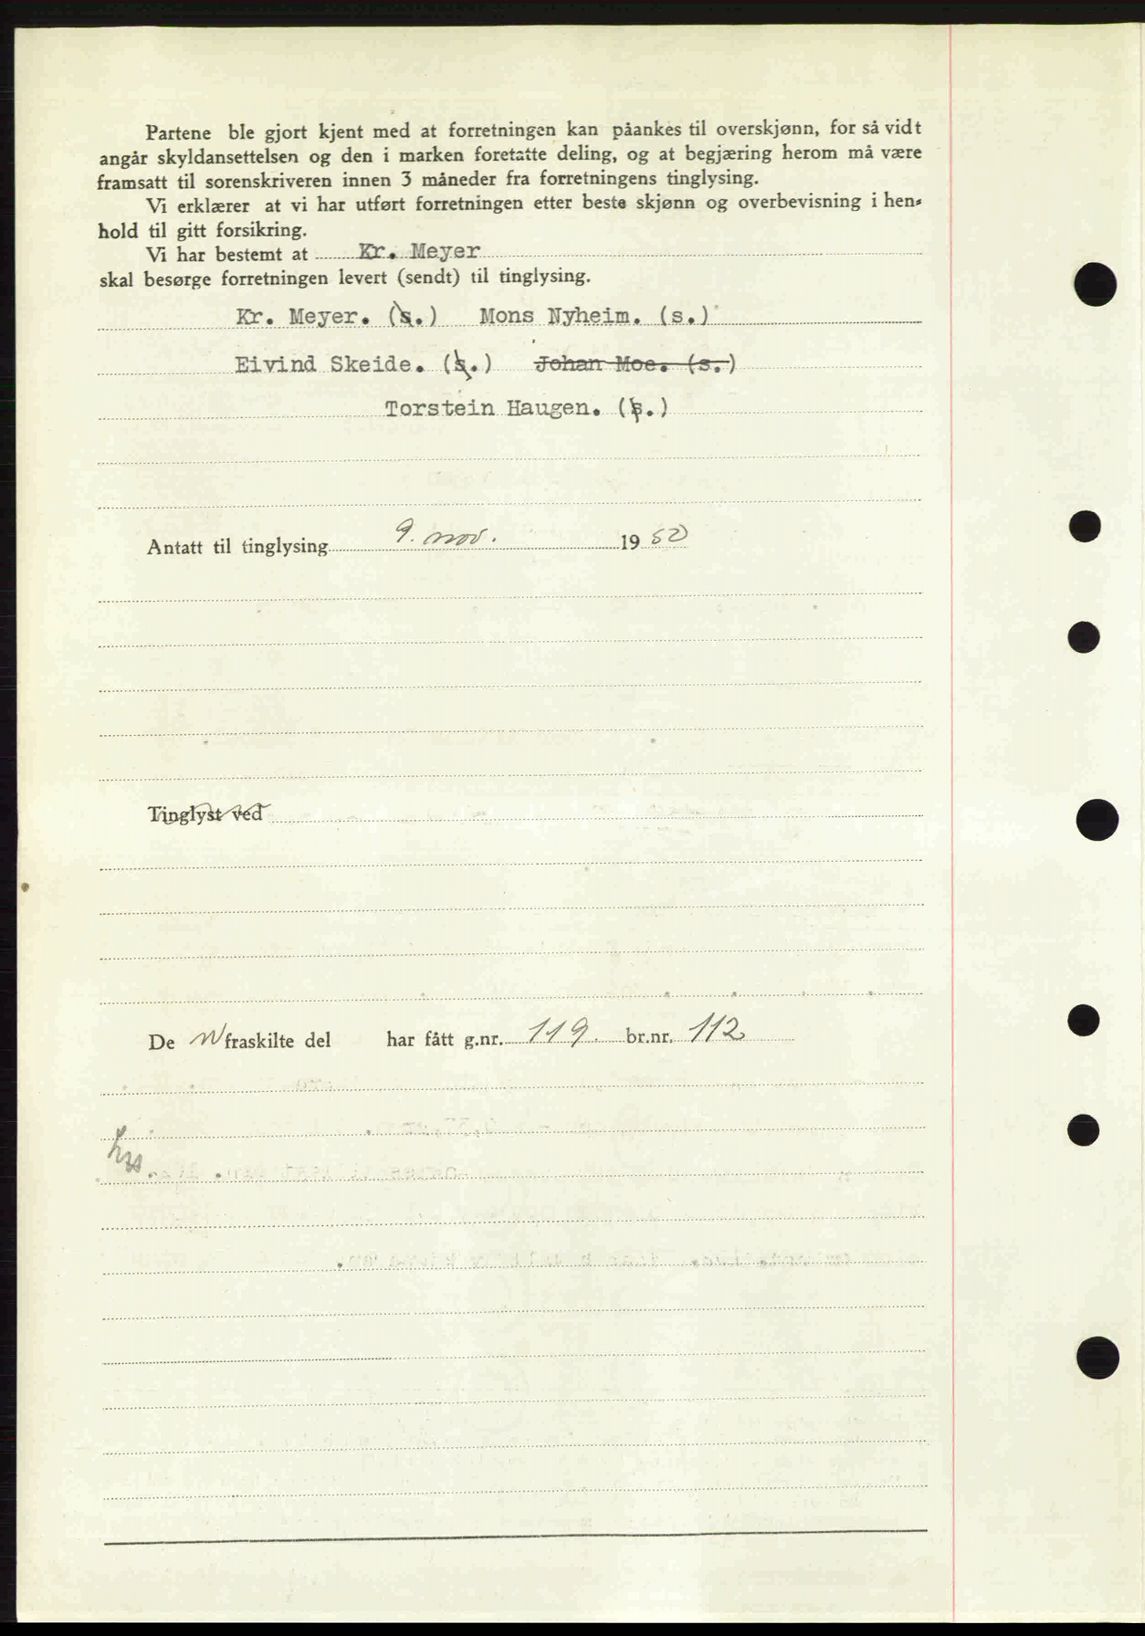 Partene ble gjort kjent med at forretningen kan påankes til overskjønn, for så vidt
angår skyldansettelsen og den i marken foretatte deling, og at begjæring herom må være
framsatt til sorenskriveren innen 3 måneder fra forretningens tinglysing.
Vi erklærer at vi har utført forretningen etter beste skjønn og overbevisning i hen-
hold til gitt forsikring.
Vi har bestemt at Kr. Meyer
skal besørge forretningen levert (sendt) til tinglysing.
Kr. Meyer. (s.) Mons Nyheim. (s.)
Eivind Skeide. (s.) Johan Moe. (s.)
Torstein Haugen. (s.)
Antatt til tinglysing 9. nov. 1950
Tinglyst ved
De n fraskilte del har fått g.nr. 119. br.nr. 112